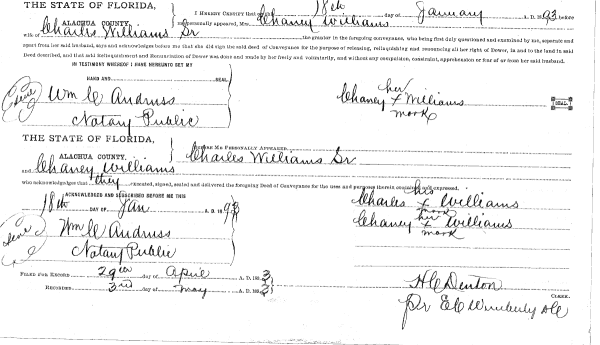 THE STATE OF FLORIDA,
ALACHUA COUNTY.
I HEREBY CERTIFY that on 18th day of January A. D. 1893 before
me personally appeared, Mrs. Chaney Williams
wife of Charles Williams Sr the grantor in the foregoing conveyance, who being first duly questioned and examined by me, separate and
apart from her said husband, says and acknowledges before me that she did sign the said deed of Conveyance for the purpose of releasing, relinquishing and renouncing all her right of Dower, in and to the land in said
Deed described, and that said Relinquishment and Renunciation of Dower was done and made by her freely and voluntarily, and without any compulsion, constraint, apprehension or fear of or from her said husband.
IN TESTIMONY WHEREOF I HAVE HEREUNTO SET MY
HAND AND SEAL,
Seal Wm C Andruss
Notary Public
her
Chaney x Williams SEAL.
mark
THE STATE OF FLORIDA,
ALACHUA COUNTY,
BEFORE ME PERSONALLY APPEARED,
Charles Williams Sr
and Chaney Williams
who acknowledges that they executed, signed, sealed and delivered the foregoing Deed of Conveyance for the uses and purposes therein contained and expressed.
ACKNOWLEDGED AND SUBSCRIBED BEFORE ME THIS
18th DAY OF Jan A. D. 1893
his
Charles x Williams
mark
her
Chaney x Williams
mark
Seal Wm C Andruss
Notary Public
FILED FOR RECORD 29th day of April A. D. 1893,
RECORDED 3rd day of May A. D. 1893
H C Denton
CLERK.
Pr E C Wimberly DC